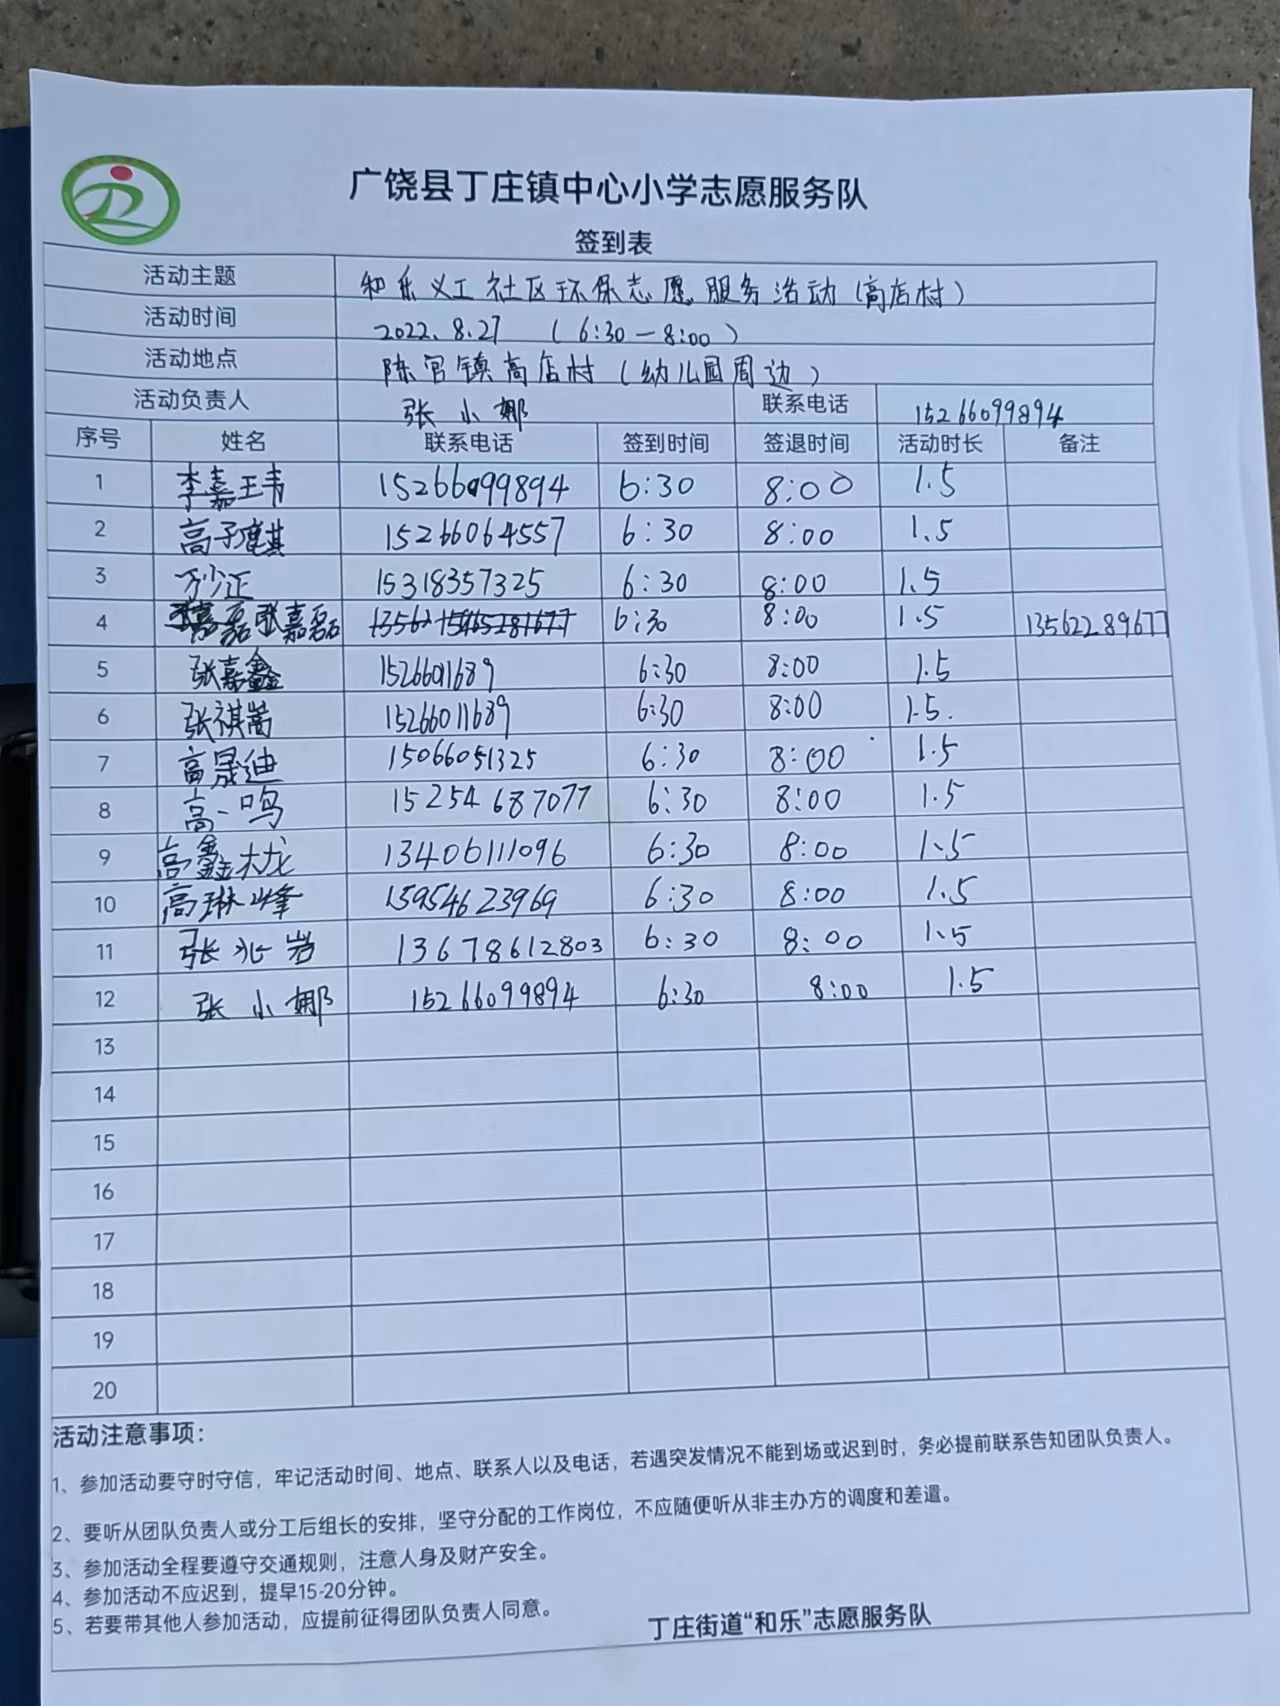 广饶县丁庄镇中心小学志愿服务队
签到表
活动主题 和乐义工社区环保志愿服务活动(高店村)
活动时间 2022.8.27 (6:30—8:00)
活动地点 陈官镇高店村(幼儿园周边)
活动负责人 张小娜 联系电话 15266099894
序号 姓名 联系电话 签到时间 签退时间 活动时长 备注
1 李嘉玮 15266099894 6:30 8:00 1.5
2 高子麒 15266064557 6:30 8:00 1.5
3 15318357325 6:30 8:00 1.5
4 张嘉磊 6:30 8:00 1.5 13562289677
5 张嘉鑫 1526601689 6:30 8:00 1.5
6 张祺嵩 15266011689 6:30 8:00 1.5.
7 高晟迪 15066051325 6:30 8:00 1.5
8 高一鸣 15254687077 6:30 8:00 1.5
9 高鑫龙 13406111096 6:30 8:00 1.5
10 高琳峰 15954623969 6:30 8:00 1.5
11 张兆岩 13678612803 6:30 8:00 1.5
12 张小娜 15266099894 6:30 8:00 1.5
13
14
15
16
17
18
19
20
活动注意事项：
1、参加活动要守时守信，牢记活动时间、地点、联系人以及电话，若遇突发情况不能到场或迟到时，务必提前联系告知团队负责人。
2、要听从团队负责人或分工后组长的安排，坚守分配的工作岗位，不应随便听从非主办方的调度和差遣。
3、参加活动全程要遵守交通规则，注意人身及财产安全。
4、参加活动不应迟到，提早15-20分钟。
5、若要带其他人参加活动，应提前征得团队负责人同意。
丁庄街道“和乐”志愿服务队